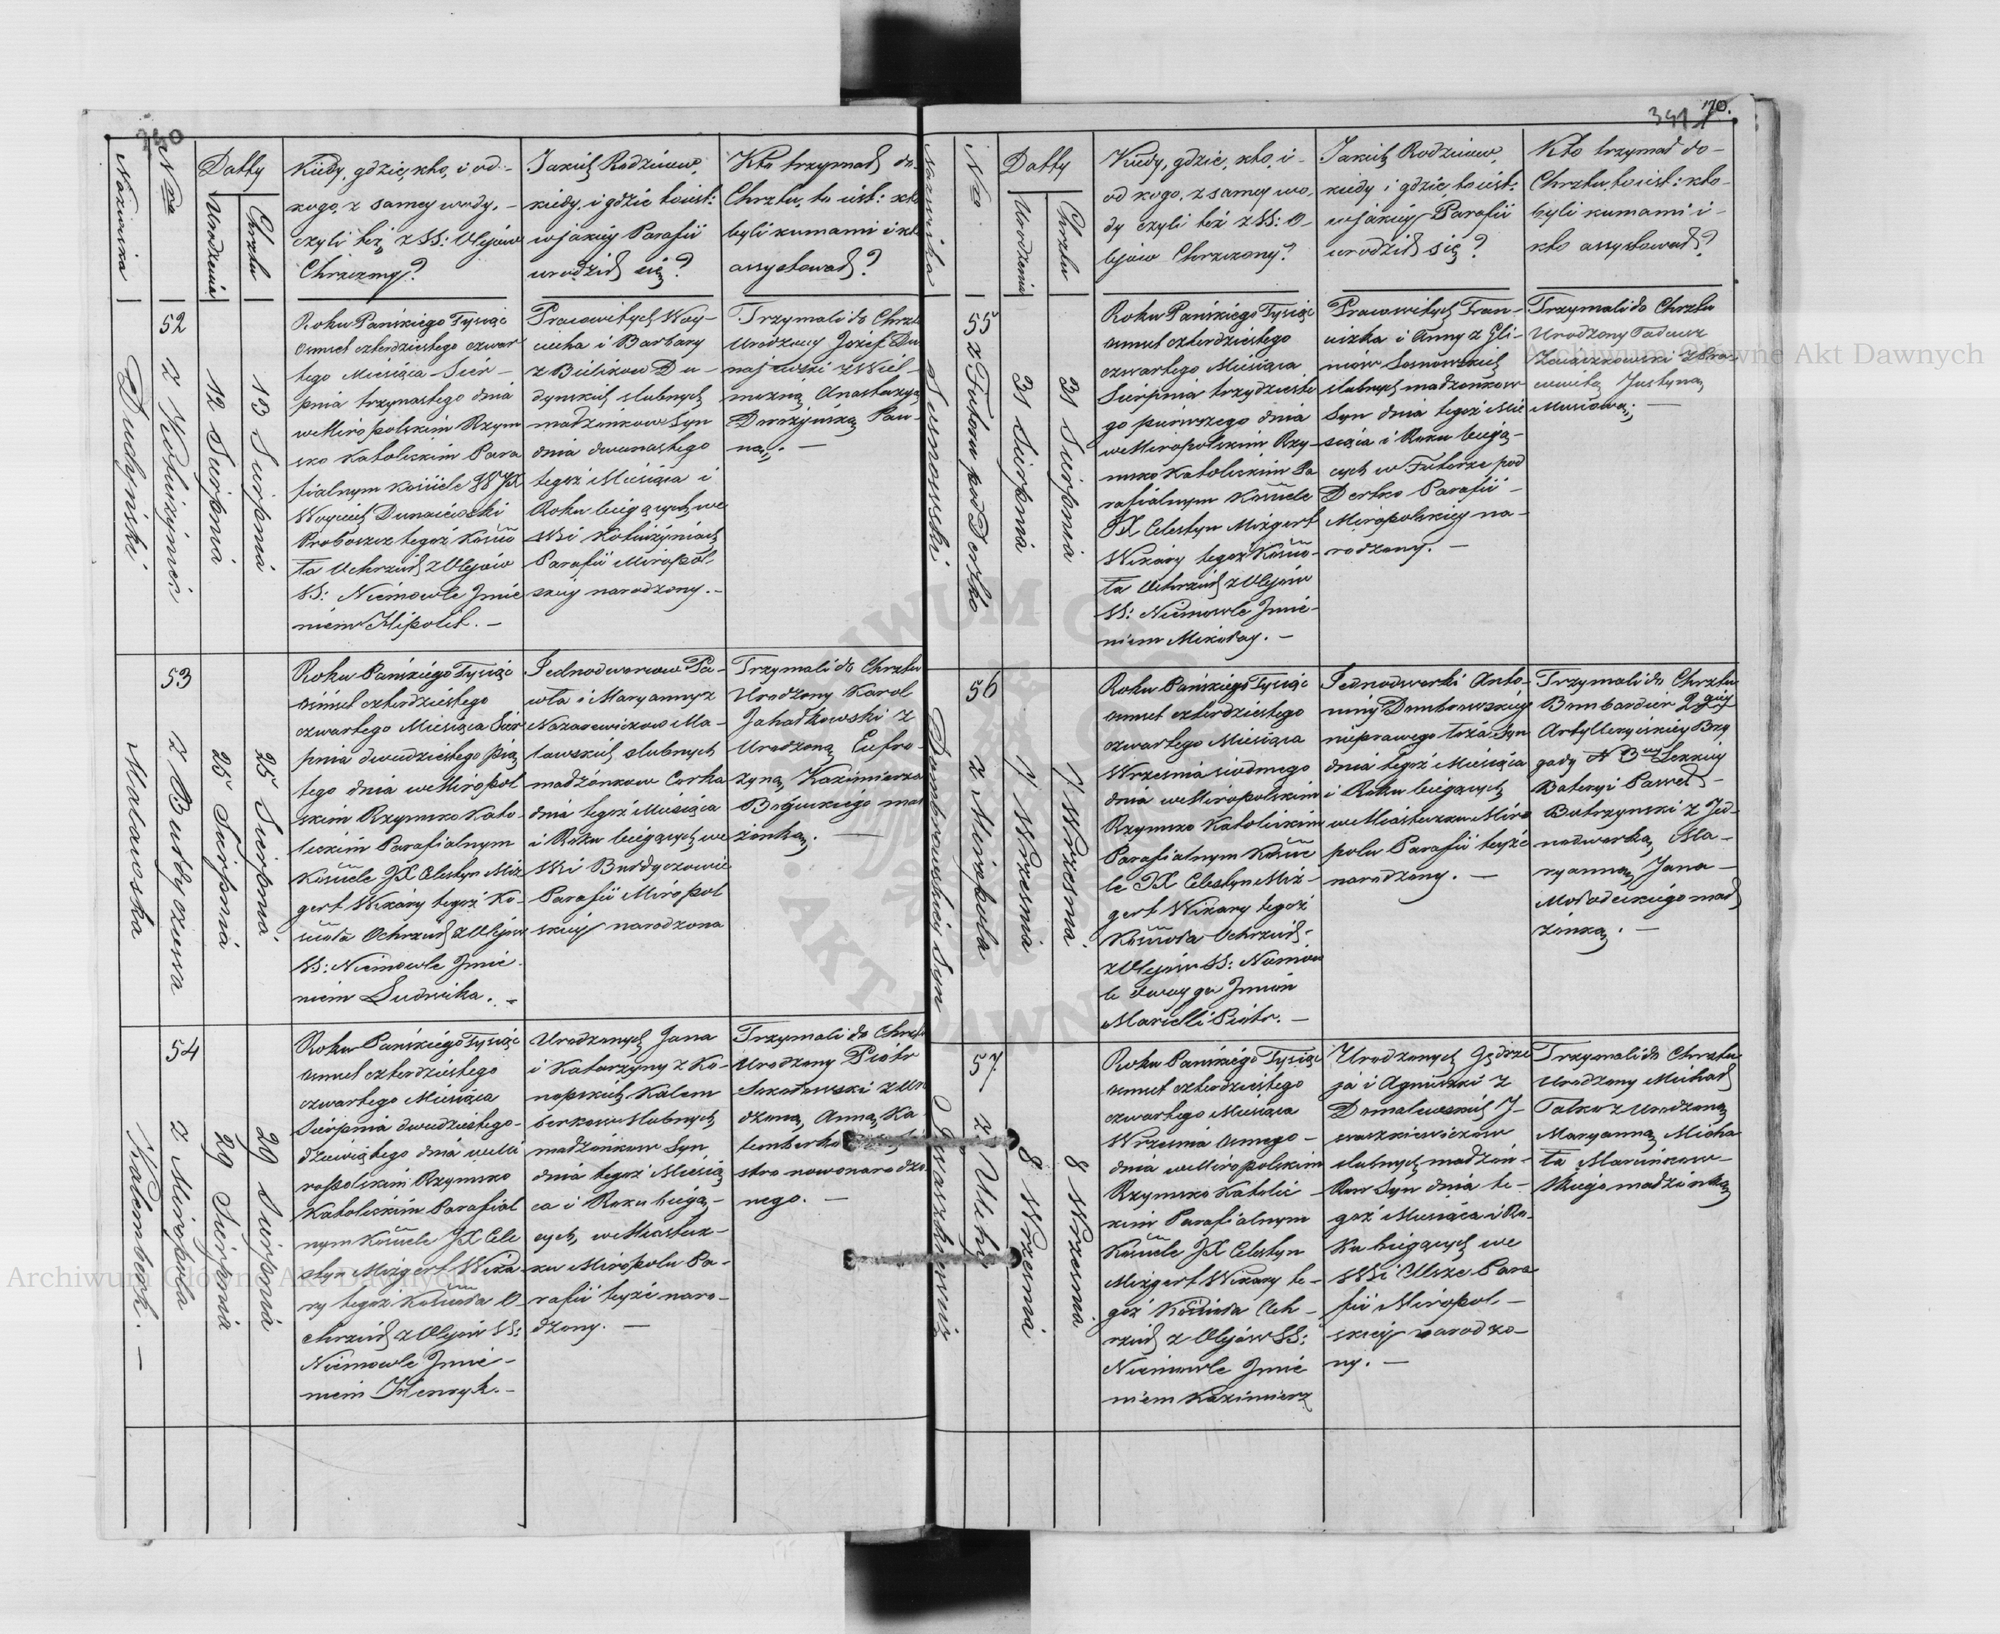 340
Nazwiska
Nro
Datty
Urodzenia
Chrztu
Kiedy, gdzie, kto, i od-
kogo, z samey wody, -
czyli też z SS: Olejów
Chrzczony?
Jakich Rodziców,
kiedy, i gdzie to iest:
w jakiey Parafii
urodził się?
Kto trzymał do
Chrztu, to iest: kto
byli kumami i kto
assystował?
Dudyński
52
z Kotiużyniec
12 Sierpnia
13 Sierpnia
Roku Pańskiego Tysiąc
osmset czterdziestego czwar
tego Miesiąca Sier-
pnia trzynastego dnia
w Miropolskim Rzym
sko Katolickim Para
fialnym Kościele JX
Woyciech Dunaiewski
Proboszcz tegoż Kościo
ła Ochrzcił z Olejów
SS: Niemowle Jmie
niem Hipolit. -
Pracowitych Woy-
ciecha i Barbary
z Bielikow Du-
dynskich slubnych
małżonkow Syn
dnia dwunastego
tegoż Miesiąca i
Roku bieżących we
Wsi Kotiużyńcach
Parafii Miropol-
skiey narodzony. -
Trzymali do Chrztu
Urodzony Jozef Du
najewski z Wiel-
możną Anastazyą
Pan-
ną. -
Malawska
53
z Burdyczowa
25 Sierpnia
25 Sierpnia
Roku Pańskiego Tysiąc
osmset czterdziestego
czwartego Miesiąca Sier
pnia dwudziestego pią
tego dnia w Miropol
skim Rzymsko Kato-
lickim Parafialnym
Kościele JX Celestyn Miz
gert Wikary tegoż Ko-
ścioła Ochrzcił z Olejów
SS: Niemowle Jmie
niem Ludwika. -
Jednodworcow Pa-
wła i Maryanny z
Nazarewiczow Ma-
lawskich slubnych
małżonkow Corka
dnia tegoż Miesiąca
i Roku bieżących we
Wsi Burdyczowie
Parafii Miropol
skiey narodzona
Trzymali do Chrztu
Urodzony Karol
z
Urodzoną Eufro-
zyną Kazimierza
mał
żonką. -
Kalemberk. -
54
z Miropola
29 Sierpnia
29 Sierpnia
Roku Pańskiego Tysiąc
osmset czterdziestego
czwartego Miesiąca
Sierpnia dwudziestego-
dziewiątego dnia w Mi
ropolskim Rzymsko
Katolickim Parafial
nym Kościele JX Cele
styn Mizgert Wika-
ry tegoż Kościoła O-
chrzcił z Olejów SS:
Niemowle Jmie-
niem Henryk. -
Urodzonych Jana
i Katarzyny z Ko-
nopskich Kalem
berkow slubnych
małżonkow Syn
dnia tegoż Miesią
ca i Roku bieżą-
cych, w Miastecz-
ku Miropolu Pa-
rafii teyże naro-
dzony. -
Trzymali do Chrztu
Urodzony Piotr
Sokołowski z Uro
dzoną Anną Ka
lemberk
stro nowonarodzo
nego. -
341
170.
Nazwiska
Nro
Datty
Urodzenia
Chrztu
Kiedy, gdzie, kto, i-
od kogo, z samey wo-
dy czyli też z SS: O-
lejów Chrzczony?
Jakich Rodziców,
kiedy i gdzie to iest:
w jakiey Parafii
urodził się?
Kto trzymał do-
Chrztu, to iest: kto-
byli kumami i-
kto assystował?
Sosnowski
55
z Futoru pod Derżko
31 Sierpnia
31 Sierpnia
Roku Pańskiego Tysiąc
osmset czterdziestego
czwartego Miesiąca
Sierpnia trzydzieste
go pierwszego dnia
w Miropolskim Rzy-
msko Katolickim Pa
rafialnym Kościele
JX Celestyn Mizgert
Wikary tegoż Kościo-
ła Ochrzcił z Olejów
SS: Niemowle Jmie-
niem Mikołay. -
Pracowitych Fran-
ciszka i Anny z Gli-
niów Sosnowskich
slubnych małżonkow
Syn dnia tegoż Mie
siąca i Roku bieżą-
cych w Futorze pod
Derżko Parafii-
Miropolskiey na-
rodzony. -
Trzymali do Chrztu
Urodzony Tadeusz
z Pra-
cowitą Justyną
-
Dombrowskiey Syn
56
z Miropola
7 Września
7 Września
Roku Pańskiego Tysiąc
osmset czterdziestego
czwartego Miesiąca
Września siodmego
dnia w Miropolskim
Rzymsko Katolickim
Parafialnym Koście
le JX Celestyn Miz-
gert Wikary tegoż
Kościoła Ochrzcił-
z Olejów SS: Niemow
le dwoyga Jmion
Marcelli Piotr. -
Jednodworki Anto-
niny Dombrowskiey
nieprawego łoża Syn
dnia tegoż Miesiąca
i Roku bieżących
w Miasteczku Miro
polu Parafii teyże
narodzony. -
Trzymali do Chrztu
Bombardier 2giey
Artylleryiskiey Bry
gady N 3ciey Lekkiey
Bateryi Paweł-
Butrzynski z Je-
nodworką Ma-
ryanną Jana-
Mołodeckiego mał
żonką. -
Jwaszkiewicz
57
z Ulchi
8 Września
8 Września
Roku Pańskiego Tysiąc
osmset czterdziestego
czwartego Miesiąca
Września osmego-
dnia w Miropolskim
Rzymsko Katolic-
kim Parafialnym
Kościele JX Celestyn
Mizgert Wikary te-
goż Kościoła Och-
rzcił z Olejów SS:
Niemowle Jmie
niem Kazimierz
Urodzonych Jędrze
ja i Agnieszki z
Domalewskich J-
waszkiewiczow
slubnych małżon-
kow Syn dnia te-
goż Miesiąca i Ro-
ku bieżących we
Wsi Ulsze Para
fii Miropol-
skiey narodzo-
ny. -
Trzymali do Chrztu
Urodzony Michał
Talko z Urodzoną
Maryanną Micha
ła Marcinkow-
skiego małżonką
Archiwum Główne Akt Dawnych
Archiwum Główne Akt Dawnych